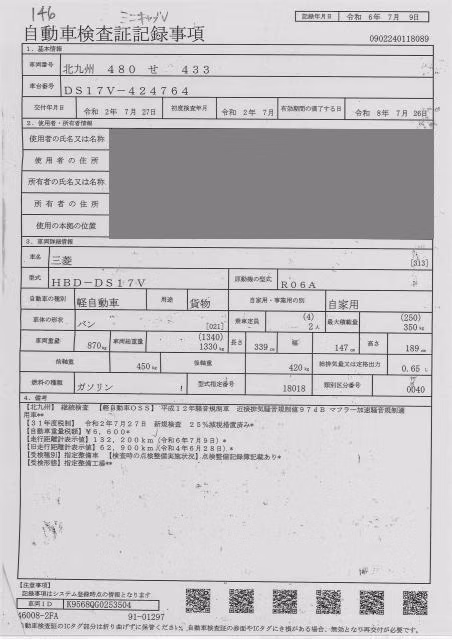 146 ミニキャブV
記録年月日 令和 6年 7月 9日
自動車検査証記録事項
0902240118089
1. 基本情報
車両番号 北九州 480 せ 433
車台番号 DS17V-424764
交付年月日 令和 2年 7月 27日 初度検査年月 令和 2年 7月 有効期間の満了する日 令和 8年 7月 26日
2. 使用者・所有者情報
使用者の氏名又は名称
使用者の住所
所有者の氏名又は名称
所有者の住所
使用の本拠の位置
3. 車両詳細情報
車名 三菱 [313]
型式 HBD-DS17V 原動機の型式 R06A
自動車の種別 軽自動車 用途 貨物 自家用・事業用の別 自家用
車体の形状 バン [021] 乗車定員 (4) 2人 最大積載量 (250) 350kg
車両重量 870kg 車両総重量 (1340) 1330kg 長さ 339cm 幅 147cm 高さ 189cm
前軸重 450kg 後軸重 420kg 総排気量又は定格出力 0.65L
燃料の種類 ガソリン 型式指定番号 18018 類別区分番号 0040
4. 備考
【北九州】 継続検査 【軽自動車OSS】 平成12年騒音規制車 近接排気騒音規制値97dB マフラー加速騒音規制適
用車**
【31年度税制】 令和2年7月27日 新規検査 25%減税措置済み*
【自動車重量税額】¥6,600*
【走行距離計表示値】132,200km(令和6年7月9日)*
【旧走行距離計表示値】62,900km(令和4年6月28日).*
【受検種別】指定整備車 【検査時の点検整備実施状況】点検整備記録簿記載あり*
【受検形態】指定整備工場**
【注意事項】
記録事項はシステム登録時点の情報となります
車両ID K9568QG0253504
46008-2FA 91-01297
自動車検査証のICタグ部分は折り曲げずに保管ください。自動車検査証の券面やICタグにき損がある場合、無効となり再交付が必要です。